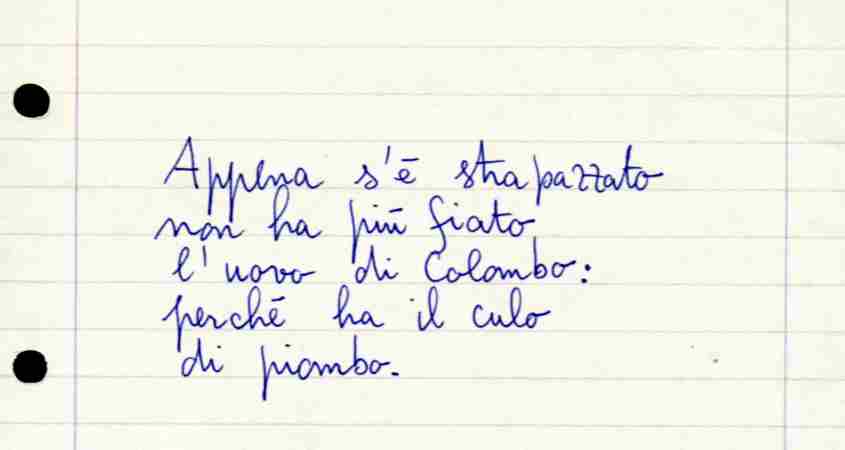 Appena s'è strapazzato
non ha più fiato
l'uovo di Colombo:
perchè ha il culo
di piombo.